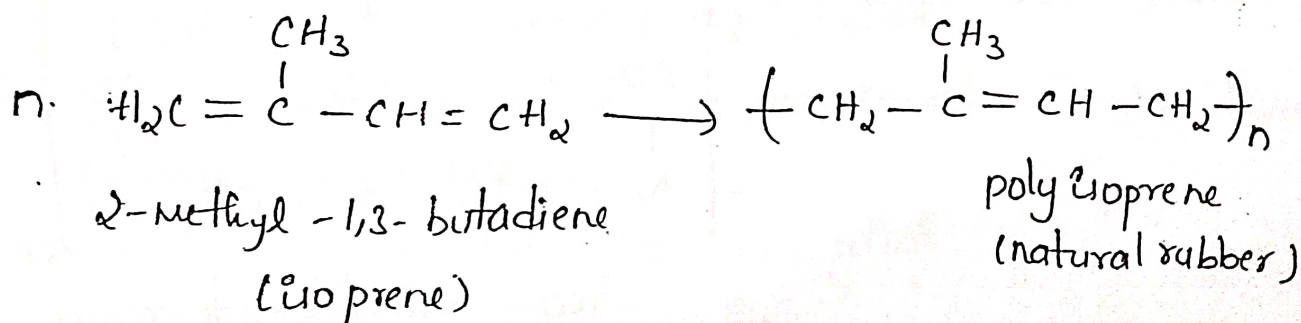 CH3 CH3
n. H2C = C - CH = CH2 ⟶ ( CH2 - C = CH - CH2 )n
2-methyl-1,3-butadiene
(isoprene)
poly isoprene
(natural rubber)